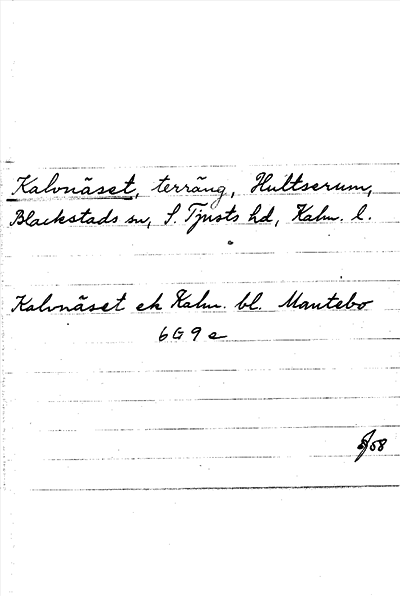 Kalvnäset, terräng, Hultserum,
Blackstads sn, S. Tjusts hd, Kalm. l.
Kalvnäset ek Kalm. bl. Mantebo
6G9e
58